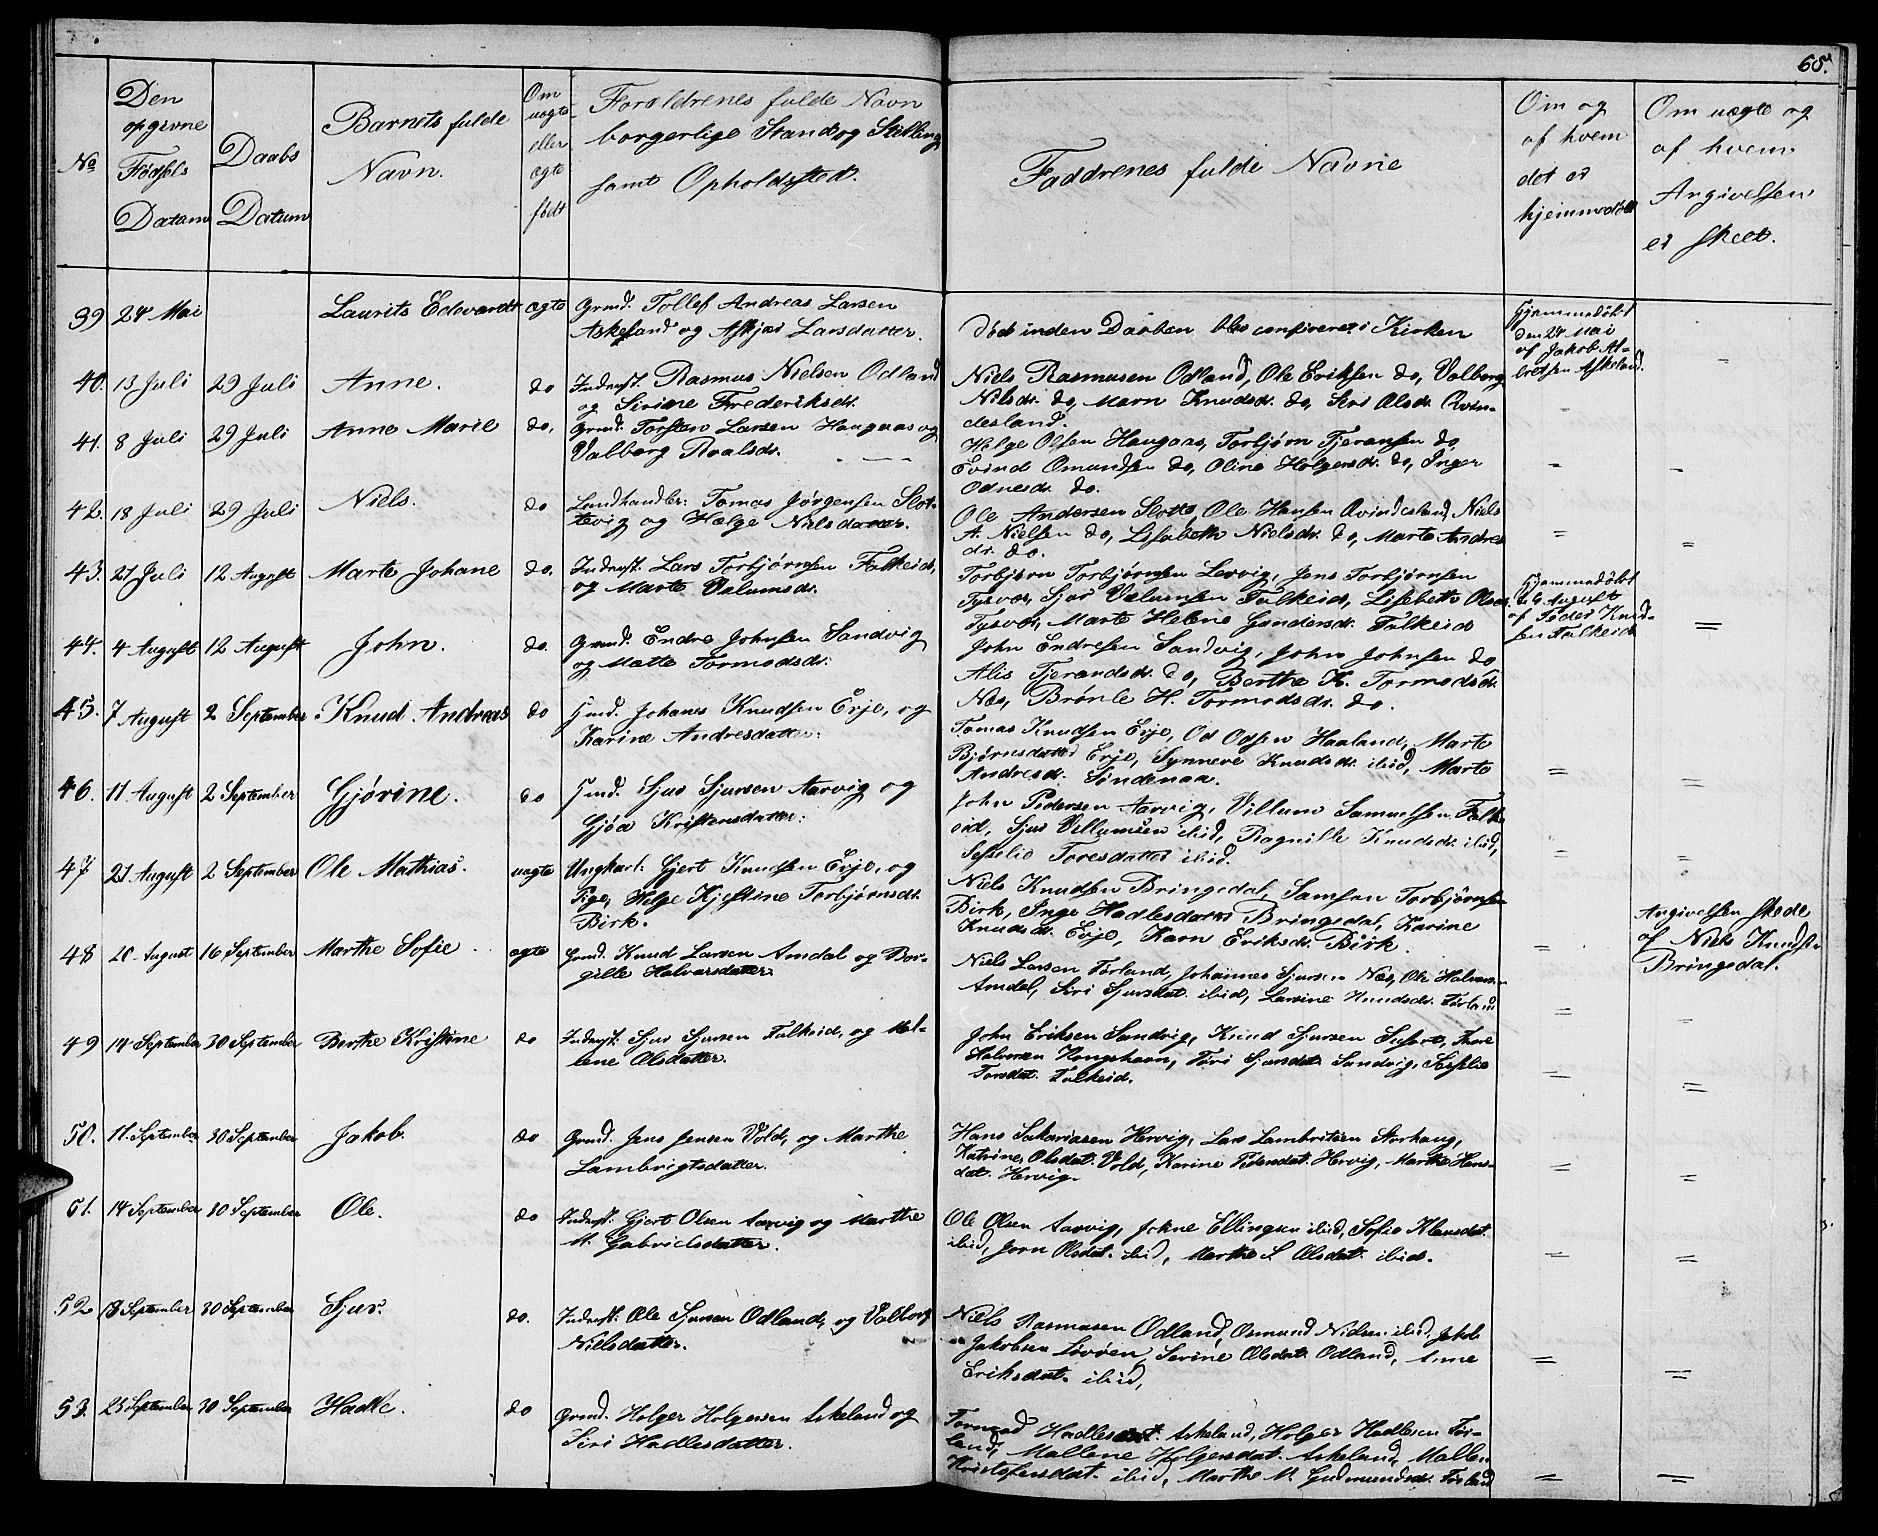 65.
No
Den
opgivne
Fødsels
Datum
Daabs
Datum
Barnets fulde
Navn.
Om
uægte
eller
ægte
født
Forældrenes fulde Navn
borgerlige Stand og Stilling
samt Opholdsted.
Faddrenes fulde Navne
Om og
af hvem
det er
hjemmedøbt
Om uægte og
af hvem
Angivelsen
er skeet.
39 24 Mai Laurits Edevardt ægte Grmd. Tollef Andreas Larsen
Askeland og Larsdatter.
Død inden Daaben blev i Kirken
Hjemmedøbt
den 24 Mai
af Jakob Al-
bretsen Askeland.
40. 13 Juli 29 Juli Anne. do Inderst. Rasmus Nielsen Odland
og Serine Frederiksdr.
Niels Rasmusen Odland, Ole Eriksen do, Valborg
Nilsdr. do, Marn Knudsdr. do, Siri Olsdr. Qvin-
desland.
41. 8 Juli 29 Juli Anne Marie do. Grmd. Torsten Larsen Haugaas og
Valborg Roalsdr.
Helge Olsen Haugaas, Torbjørn Tjeransen do,
Evind Omundsen do, Oline Holgersdr. do, Inger
Odnesdr. do.
42. 18 Juli 29 Juli Niels. do Landhandler: Tomas Jørgensen Slot-
tevig og Helge Nielsdatter.
Ole Andersen Slotte, Ole Hansen Qvindesland, Niels
A. Nielsen do, Lisabeth Nielsdr. do, Marte Andres
dr. do.
43. 27 Juli 12 August Marte Johane do. Inderst. Lars Torbjørnsen Falkeid,
og Marte Valumsdr.
Torbjørn Torbjørnsen Lervig, Jens Torbjørnsen
Tysvær, Sjur Velumsen Falkeid, Lisebeth Olsdr.
Tysvær, Marte Helene Gundersdr. Falkeid
Hjemmedøbt
August
af Peder Knud-
sen Falkeid
44. 4 August 12 August John. do. Grmd. Endre Johnsen Sandvig
og Mætte Tormodsdr.
John Endresen Sandvig, John Johnsen do
Alis Tjerandsdr. do, Berthe K. Tormodsdr.
Næs, Brønle H. Tormodsdr. do.
45. 7 August 2 September Knud Andreas do Grmd. Johanes Knudsen Erje, og
Karine Andresdatter.
Tomas Knudsen Evje, Od Odsen Haaland, Marte
Bjørnsdatter Evje, Synneve Knudsdr. ibid, Marte
Andresdr. Søndenaa.
46. 11 August 2 September Gjørine. do Grmd. Sjur Sjursen Aarvig og
Gjøa Kristensdatter.
John Pedersen Aarvig, Villum Samuelsen Falk-
eid, Sjur Villumsen ibid, Ragnille Knudsdr. ibid,
Sesselie Toresdatter ibid.
47 21 August 2 September Ole Mathias. uægte Ungkarl: Gjert Knudsen Evje, og
Pige, Helge Kjestine Torbjørnsdr.
Birk.
Niels Knudsen Bringedal, Samson Torbjørnsen
Birk, Inge Hadlesdatter Bringedal, Karine
Knudsdr. Evje, Karn Eriksdr. Birk.
Angivelsen skede
af Niels Knudsen
Bringedal.
48 20 August 16 September Marthe Sofie ægte Grmd. Knud Larsen Amdal og Bor-
gille Halvorsdatter
Niels Larsen Førland, Johannes Sjursen Næs, Ole Halvorsen
Amdal, Siri Sjursdat. ibid, Larsine Knudsdr. Førland
49 14 September 30 September Berthe Kristine do Inderst. Sjur Sjursen Falkeid, og Mal-
lene Olsdatter.
John Eriksen Sandvig, Knud Sjursen Susort, Tore
Halvorsen Kongshavn, Turi Sjursdat. Sandvig, Sesselie
Toresdat. Falkeid.
50. 11. September 30 September Jakob. do Grmd. Jens Jensen Vold, og Marthe
Lambrigtsdatter.
Hans Sakariasen Hervig, Lars Lambritsen Storhaug,
Katrine Olsdat. Vold, Karine Pedersdat. Hervig, Marthe Hans-
dat. Hervig.
51. 14 September 30 September Ole. do Inderst. Gjert Olsen Aarvig og Marthe
M. Gabrielsdatter.
Ole Olsen Aarvig, Johne Ellingsen ibid, Sofie Klausdat.
ibid, Jorn Olsdat. ibid, Marthe S Olsdat. ibid.
52 18 September 30 September Sjur. do. Inderst. Ole Sjursen Odland, og Valborg
Nilsdatter.
Niels Rasmusen Odland, Osmund Nielsen ibid, Jakob
Jakobsen Løvøen, Serine Olsdat. Odland, Anne
Eriksdat. ibid,
53. 25 September 30 September Hadle. do Grmd. Holger Holgersen Askeland og
Siri Hadlesdatter.
Tormod Hadlesen Askeland, Holger Hadlesen Før-
land, Mallene Holgersdat. Askeland, Mallen
Kristofersdat. ibid, Marthe M. Gudmundsdr. Førland